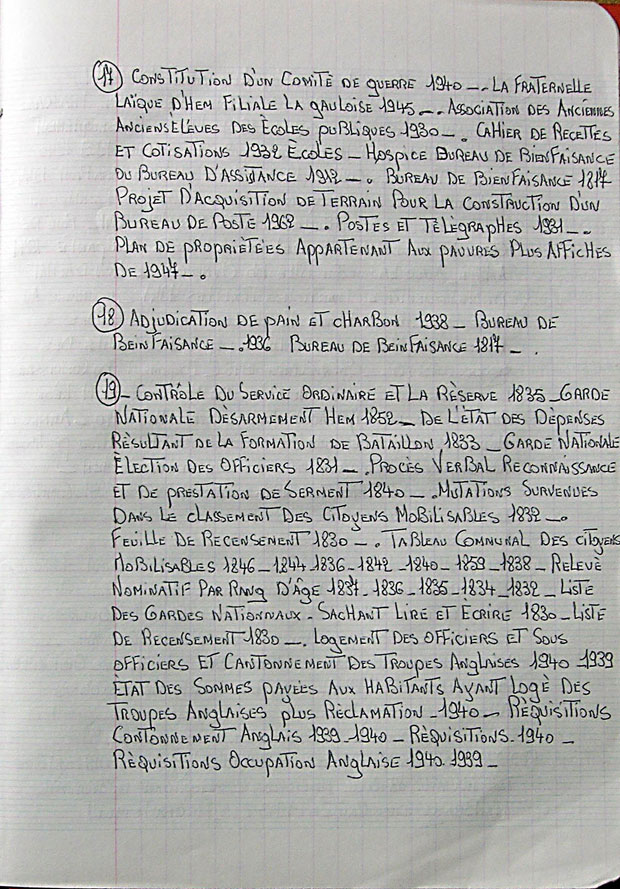 17 CONSTITUTION D'UN COMITÈ DE GUERRE 1940 _. LA FRATERNELLE
LAÏQUE D'HEM FILIALE LA GAULOISE 1945 _. ASSOCIATION DES ANCIENNES
ANCIENS ÉLÈVES DES ÈCOLES PUBLIQUES 1930 _. CAHIER DE RECETTES
ET COTISATIONS 1932 ECOLES _ HOSPICE BUREAU DE BIENFAISANCE
DU BUREAU D'ASSISTANCE 1912 _. BUREAU DE BIENFAISANCE 1817
PROJET D'ACQUISITION DE TERRAIN POUR LA CONSTRUCTION D'UN
BUREAU DE POSTE 1962 _. POSTES ET TÉLÈGRAPHES 1931 _.
PLAN DE PROPRIÉTÉES APPARTENANT AUX PAUVRES PLUS AFFICHES
DE 1947 _.
18 ADJUDICATION DE PAIN ET CHARBON 1938 _ BUREAU DE
BEINFAISANCE _.1936 BUREAU DE BEINFAISANCE 1817 _ .
19 _ CONTRÔLE DU SERVICE ORDINAIRE ET LA RÈSERVE 1835_GARDE
NATIONALE DÈSARMEMENT HEM 1852_ DE L'ÉTAT DES DÈPENSES
RÈSULTANT DE LA FORMATION DE BATAILLON 1833 _GARDE NATIONALE
ÈLECTION DES OFFICIERS 1831 _.PROCÈS VERBAL RECONNAISSANCE
ET DE PRESTATION DE SERMENT 1840 _.MUTATIONS SURVENUES
DANS LE CLASSEMENT DES CITOYENS MOBILISABLES 1832_.
FEUILLE DE RECENSEMENT 1830 _. TABLEAU COMMUNAL DES CITOYENS
MOBILISABLES 1846_1844_1836_1842_1840_1859_1838_ RELEVÈ
NOMINATIF PAR RANG D'ÂGE 1837_1836_1835_1834_1832_ LISTE
DES GARDES NATIONNAUX - SACHANT LIRE ET ECRIRE 1830_LISTE
DE RECENSEMENT 1830 _. LOGEMENT DES OFFICIERS ET SOUS
OFFICIERS ET CANTONNEMENT DES TROUPES ANGLAISES 1940 1939
ÈTAT DES SOMMES PAYÉES AUX HABITANTS AYANT LOGÈ DES
TROUPES ANGLAISES PLUS RÈCLAMATION _1940_ RÈQUISITIONS
CONTONNEMENT ANGLAIS 1939_1940_ RÈQUISITIONS.1940 _
RÈQUISITIONS OCCUPATION ANGLAISE 1940.1939_